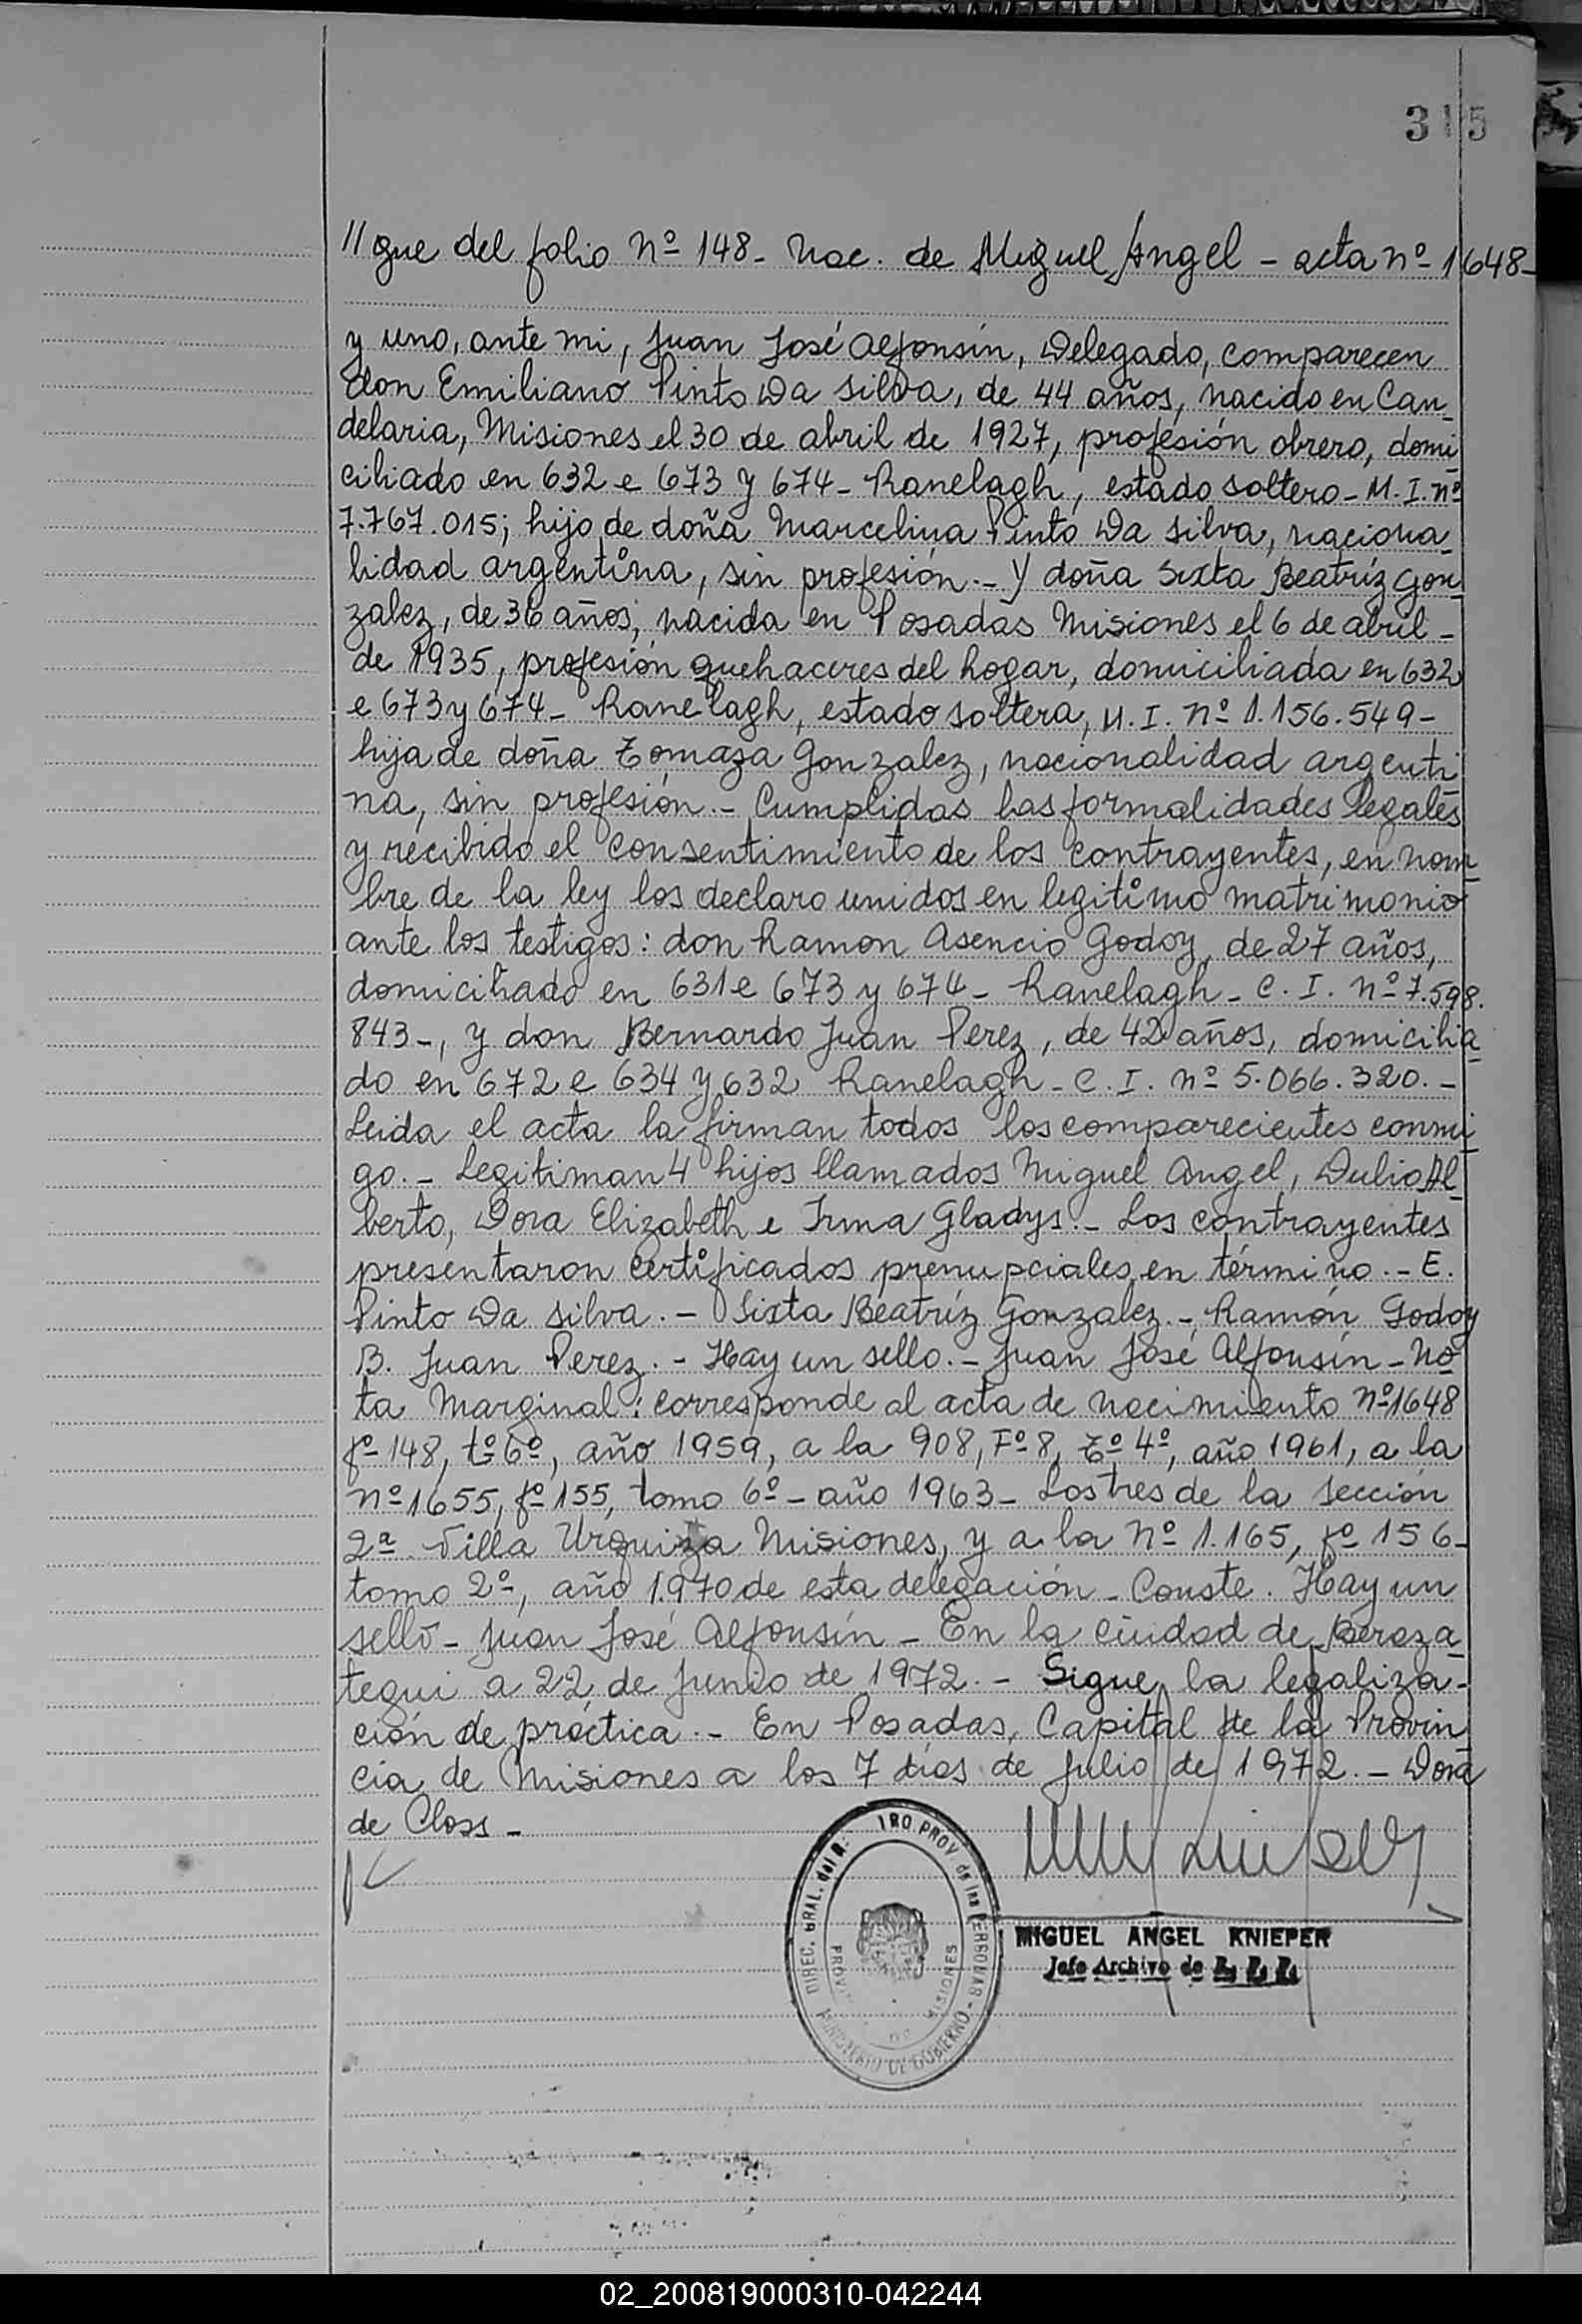 315
//gue del folio Nº 148- Nac. de Miguel Angel - acta nº 1648-
y uno, ante mi, Juan José Alfonsín, Delegado, comparecen
don Emiliano Pinto Da Silva, de 44 años, nacido en Can_
delaria, Misiones el 30 de abril de 1927, profesión obrero, domi_
ciliado en 632 e 673 y 674- Ranelagh, estado soltero- M. I. nº
7.767.015; hijo de doña Marcelina Pinto Da Silva, naciona_
lidad argentina, sin profesión.- Y doña Sixta Beatríz Gon_
zalez, de 36 años, nacida en Posadas Misiones el 6 de abril -
de 1935, profesión quehaceres del hogar, domiciliada en 632
e 673 y 674- Ranelagh, estado soltera, M. I. nº 1.156.549-
hija de doña Tomasa Gonzalez, nacionalidad argenti_
na, sin profesión.- Cumplidas las formalidades legales
y recibido el consentimiento de los contrayentes, en nom_
bre de la ley los declaro unidos en legitimo matrimonio
ante los testigos: don Ramon Asencio Godoy, de 27 años,
domiciliado en 631 e 673 y 674- Ranelagh- C. I. nº 7.598.
843-, y don Bernardo Juan Perez, de 42 años, domicilia_
do en 672 e 634 y 632 Ranelagh- C. I. nº 5.066.320.-
Leida el acta la firman todos los comparecientes conmi_
go.- Legitiman 4 hijos llamados Miguel Angel, Dulio Al_
berto, Dora Elizabeth e Irma Gladys.- Los contrayentes
presentaron certificados prenupciales en término.- E.
Pinto Da Silva.- Sixta Beatríz Gonzalez.- Ramón Godoy
B. Juan Perez.- Hay un sello.- Juan José Alfonsín- No_
ta Marginal: corresponde al acta de nacimiento nº 1648
fº 148, tº 6º, año 1959, a la 908, Fº 8, Tº 4º, año 1961, a la
nº 1655, fº 155, tomo 6º- año 1963- Los tres de la sección
2ª Villa Urquiza Misiones, y a la nº 1.165, fº 156-
tomo 2º, año 1.970 de esta delegación- Conste. Hay un
sello- Juan José Alfonsín- En la ciudad de Beraza_
tegui a 22 de Junio de 1972.- Sigue la legaliza-
ción de práctica.- En Posadas, Capital de la Provin_
cia de Misiones a los 7 días de Julio de 1972.- Dora
de Closs-
DIREC. GRAL. del R. PROV. de las PERSONAS - MINISTERIO DE GOBIERNO
PROV. MISIONES
MIGUEL ANGEL KNIEPER
Jefe Archivo de
02_200819000310-042244